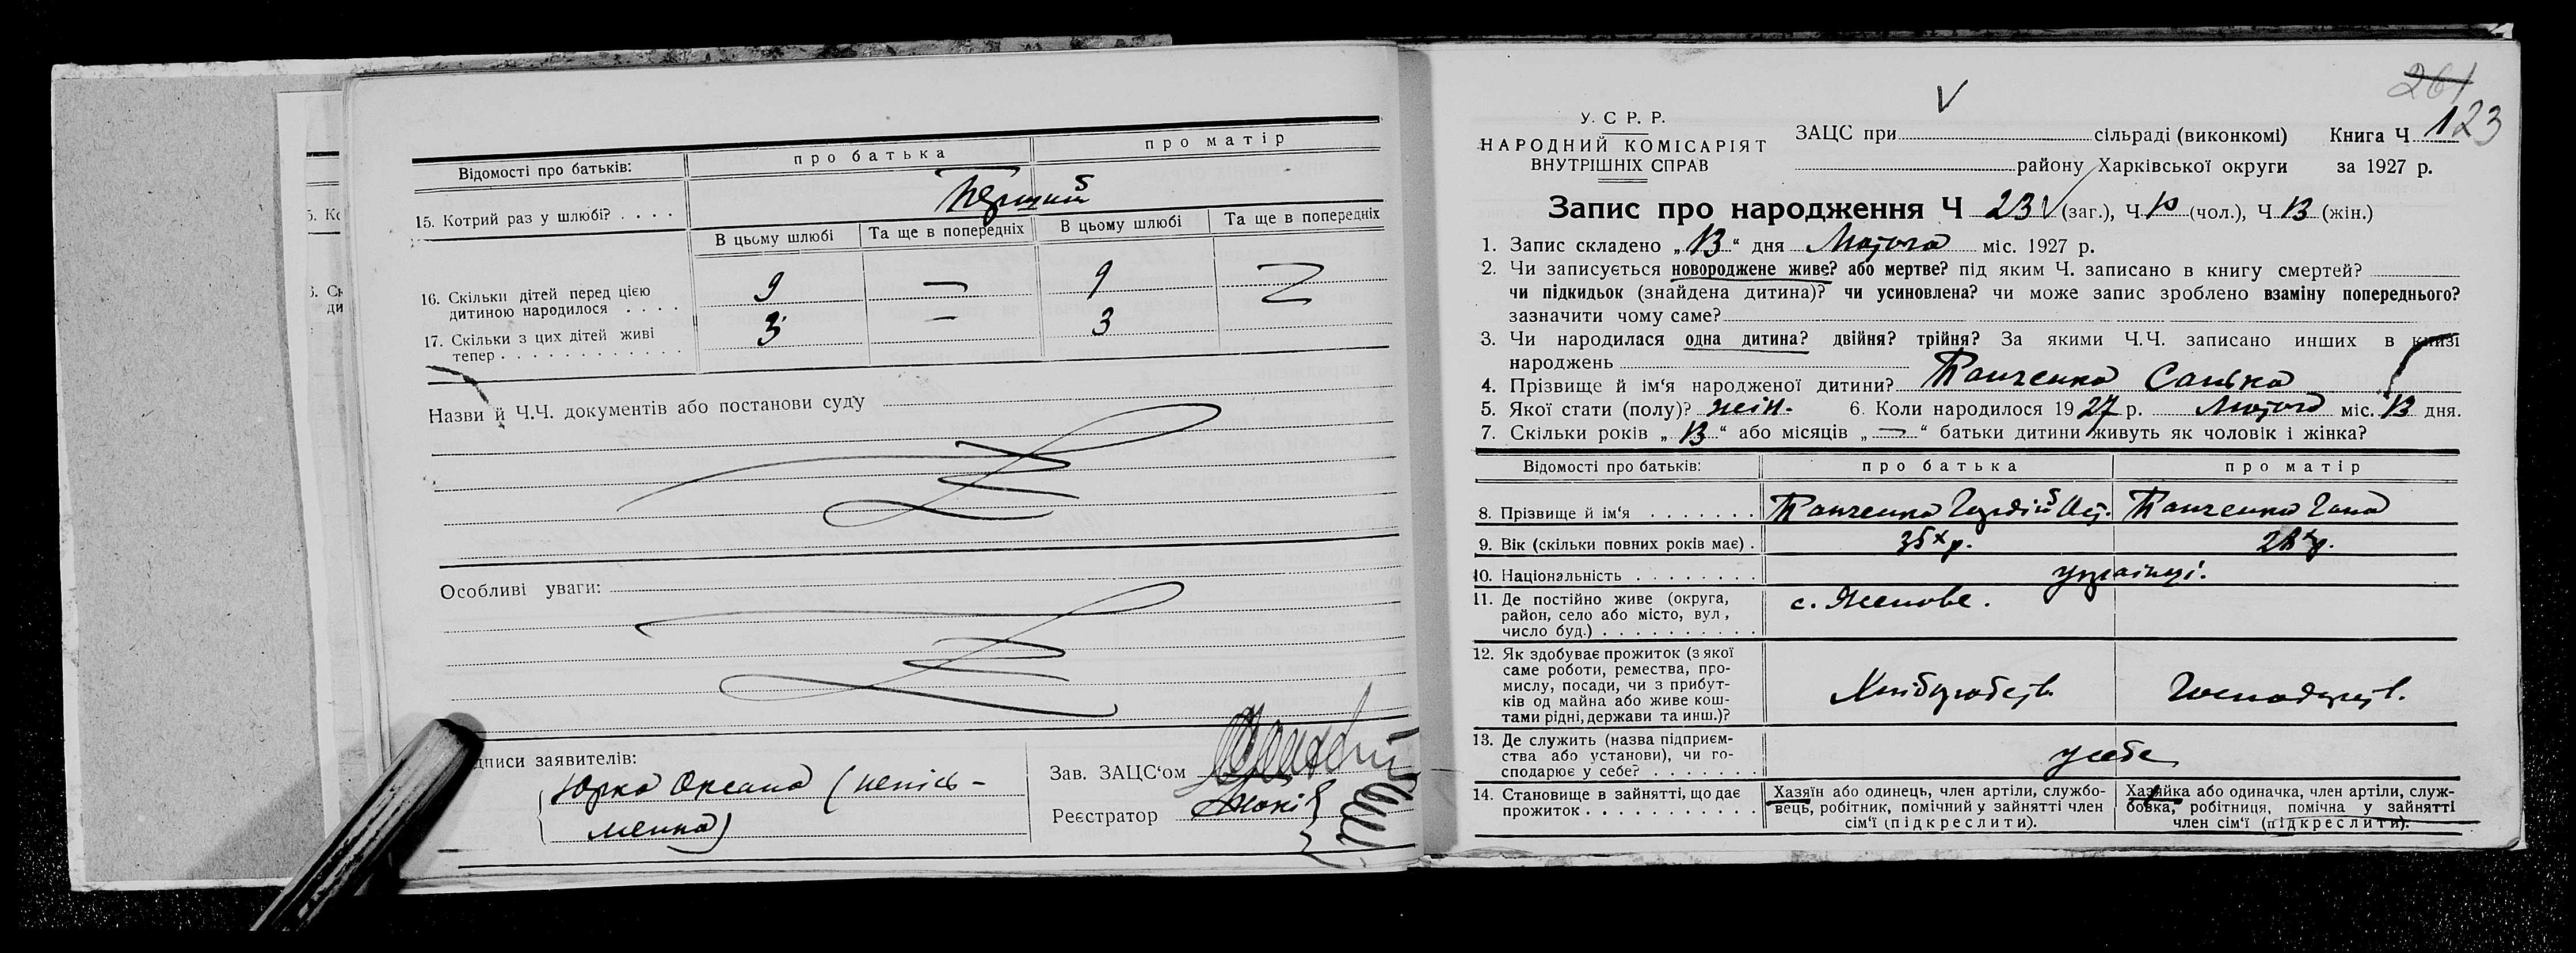 Відомості про батьків: про батька про матір
15. Котрий раз у шлюбі? . . . . Перший
В цьому шлюбі Та ще в попередніх В цьому шлюбі Та ще в попередніх
16. Скільки дітей перед цією
дитиною народилося . . . . 9 — 9 —
17. Скільки з цих дітей живі
тепер . . . . . . . . . . . . . 3 — 3
Назви й Ч.Ч. документів або постанови суду
Особливі уваги:
дписи заявителів:
Юрко Оксана (непісь-
менна)
Зав. ЗАЦС‘ом
Реєстратор
261
123
У. С. Р. Р.
НАРОДНИЙ КОМІСАРІЯТ
ВНУТРІШНІХ СПРАВ
ЗАЦС при сільраді (виконкомі) Книга Ч 1
району Харківської округи за 1927 р.
Запис про народження Ч 23 (заг.), Ч (чол.), Ч 13 (жін.)
1. Запис складено „13“ дня Лютого міс. 1927 р.
2. Чи записується новороджене живе? або мертве? під яким Ч. записано в книгу смертей?
чи підкидьок (знайдена дитина)? чи усиновлена? чи може запис зроблено взаміну попереднього?
зазначити чому саме?
3. Чи народилася одна дитина? двійня? трійня? За якими Ч.Ч. записано инших в книзі
народжень
4. Прізвище й ім‘я народженої дитини? Танченко Санька
5. Якої стати (полу)? жін. 6. Коли народилося 1927 р. Лютого міс. 13 дня.
7. Скільки років „13“ або місяців „—“ батьки дитини живуть як чоловік і жінка?
Відомості про батьків: про батька про матір
8. Прізвище й ім‘я . . . . . . . Танченко Гордій Танченко Гана
9. Вік (скільки повних років має) . 35 р. р.
10. Національність . . . . . . . . українці.
11. Де постійно живе (округа,
район, село або місто, вул,
число буд.) . . . . . . . . . . . с. Ясенове.
12. Як здобуває прожиток (з якої
саме роботи, ремества, про-
мислу, посади, чи з прибут-
ків од майна або живе кош-
тами рідні, держави та инш.)? Хліборобств. Господарств.
13. Де служить (назва підприєм-
ства або установи), чи го-
сподарює у себе? . . . . . . . у себе
14. Становище в зайнятті, що дає
прожиток . . . . . . . . . . .
Хазяїн або одинець, член артіли, службо-
вець, робітник, помічний у зайнятті член
сім‘ї (підкреслити).
Хазяйка або одиначка, член артіли, служ-
бовка, робітниця, помічна у зайнятті
член сім‘ї (підкреслити).